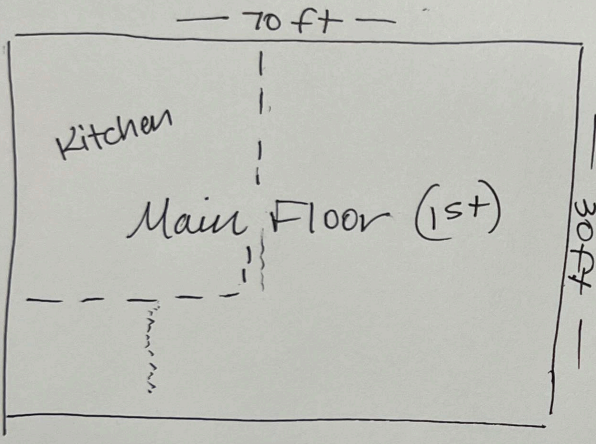 70 ft
Kitchen
Main Floor (1st)
30ft